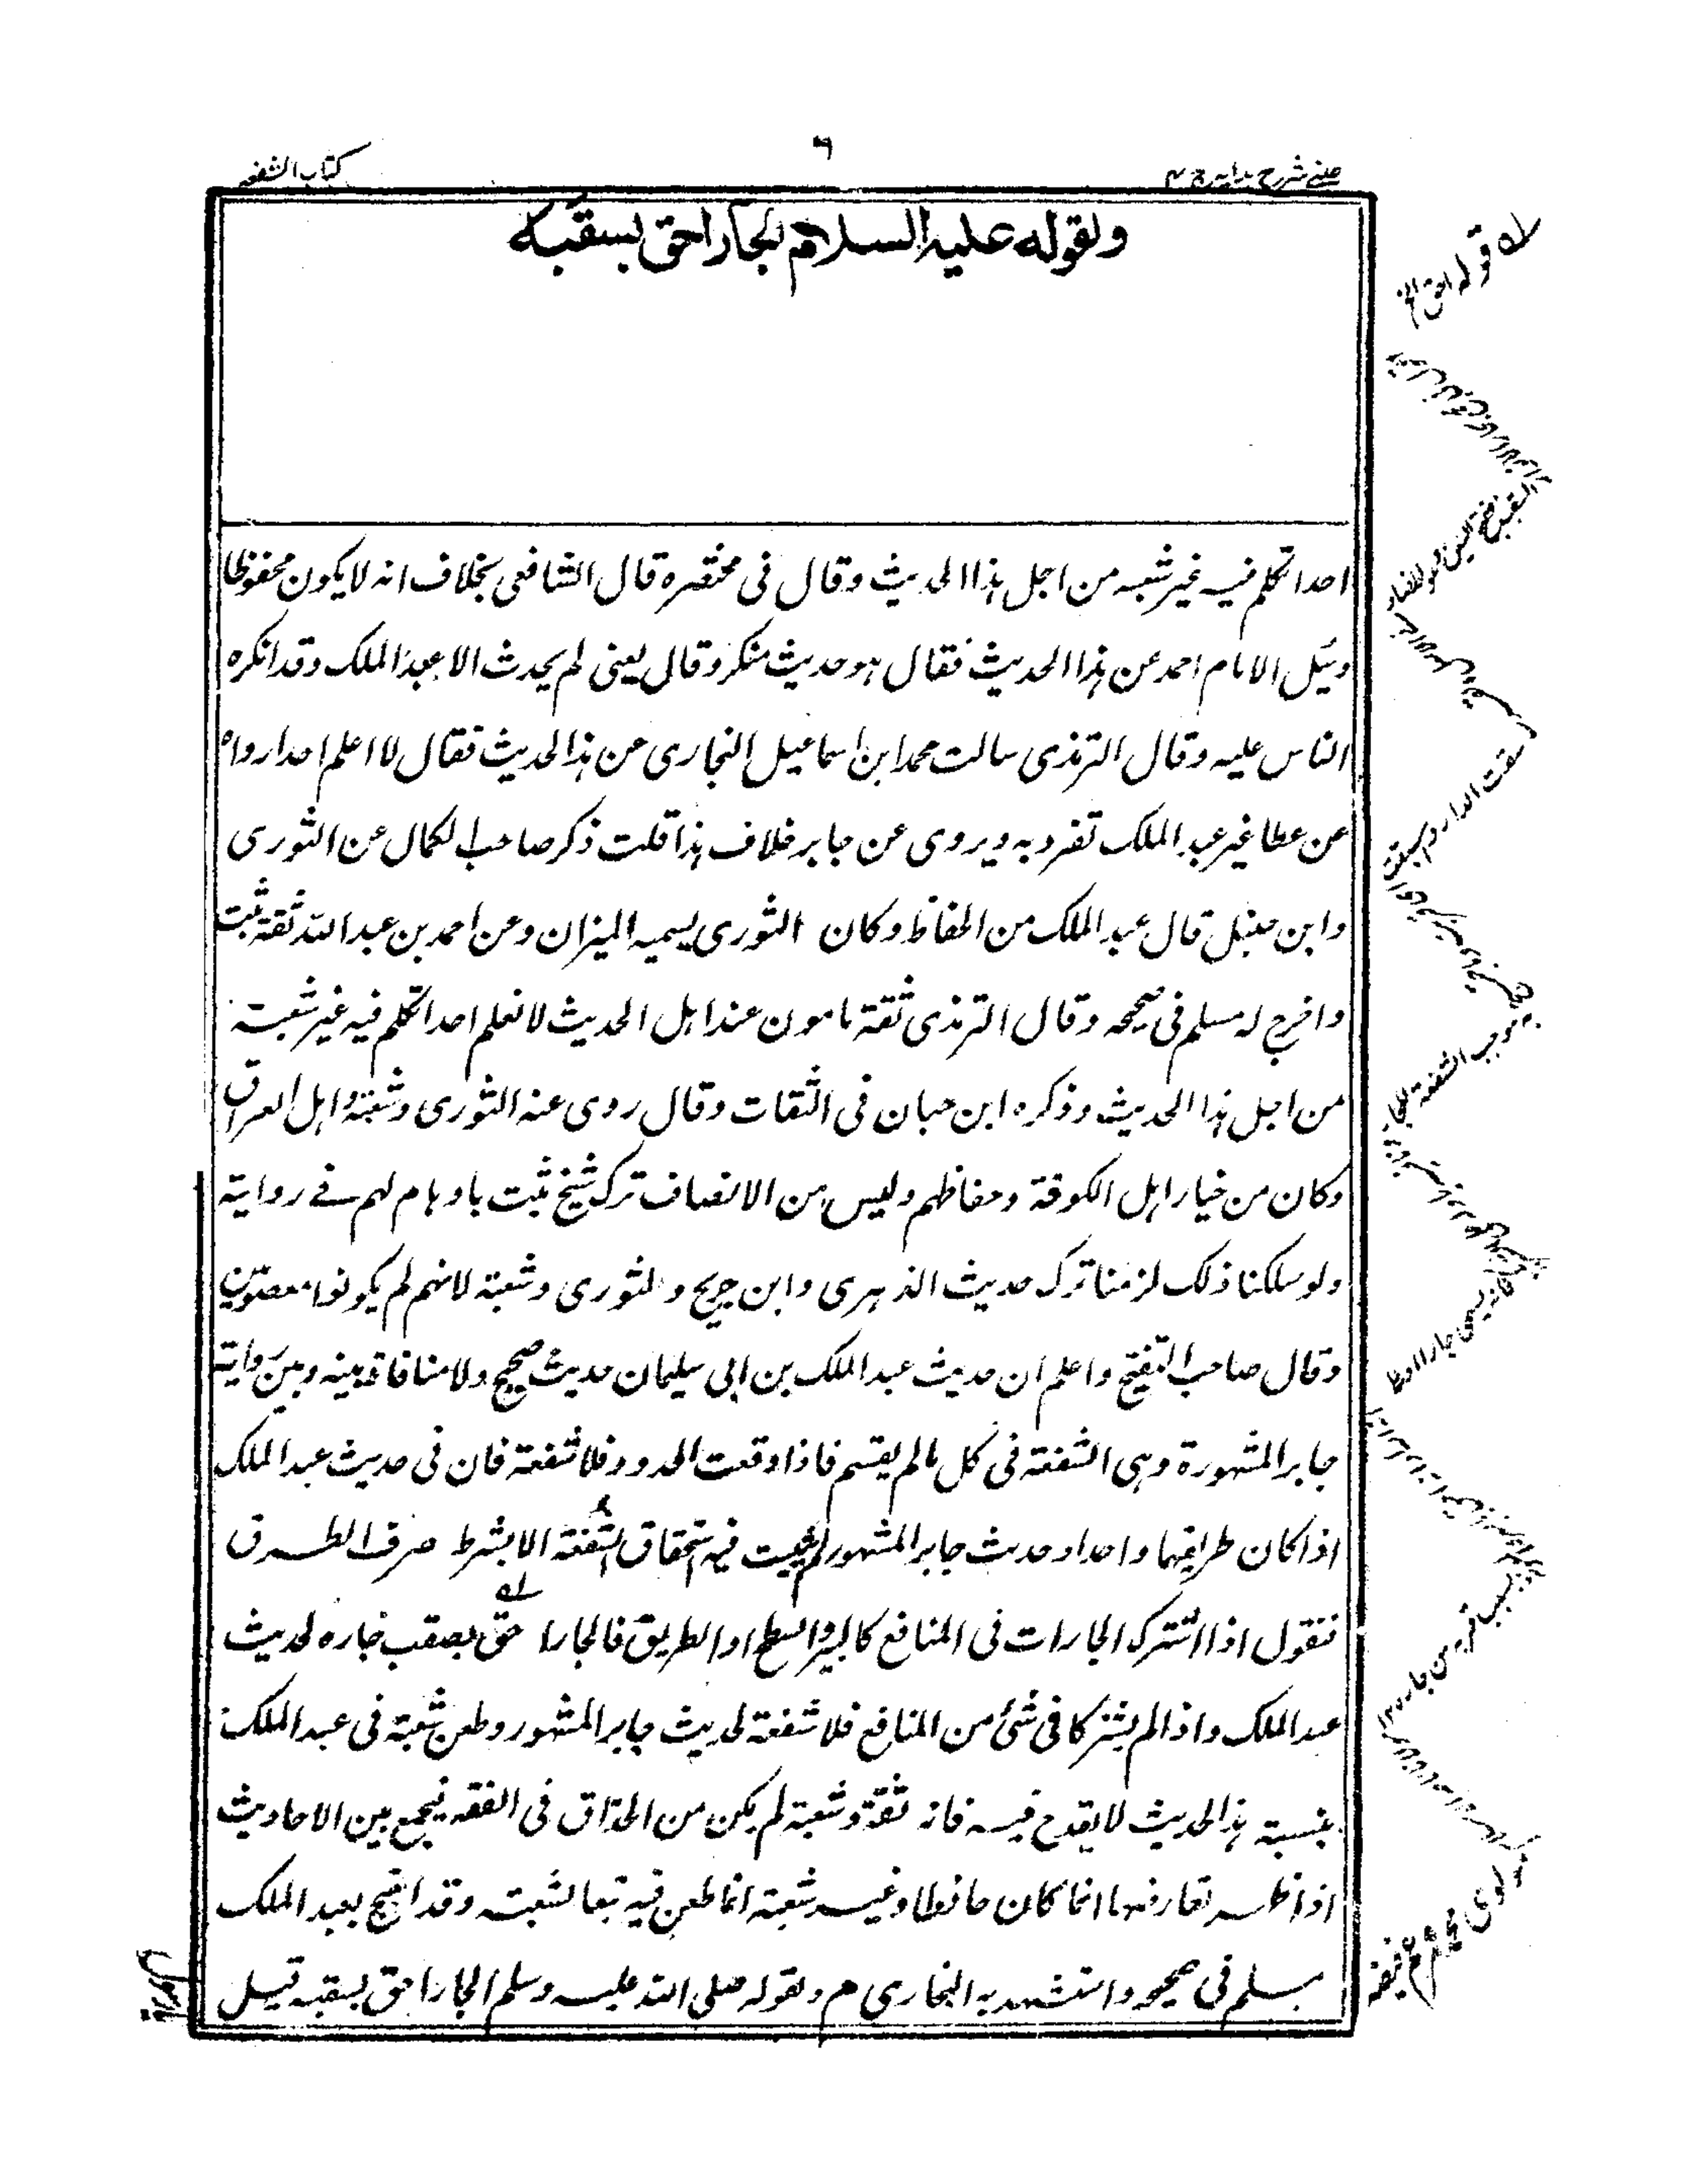 عيني شرح هدايه ج ٤
٦
كتاب الشفعه
ولقوله عليه السلام الجار احق بسقبه
احدا تكلم فيه غير شعبه من اجل هذا الحديث وقال فى مختصره قال الشافعى بخلاف انه لا يكون محفوظا
وسئل الامام احمد عن هذا الحديث فقال هو حديث منكر وقال يعنى لم يحدث الا عبد الملك وقد انكره
الناس عليه وقال الترمذى سالت محمد ابن اسماعيل البخارى عن هذا الحديث فقال لا اعلم احدا رواه
عن عطا غير عبد الملك تفرد به ويروى عن جابر خلاف هذا قلت ذكر صاحب الكمال عن الثورى
وابن حنبل قال عبد الملك من الحفاظ وكان الثورى يسميه الميزان وعن احمد بن عبد الله ثقة ثبت
واخرج له مسلم فى صحيحه وقال الترمذى ثقة مامون عند اهل الحديث لا نعلم احدا تكلم فيه غير شعبة
من اجل هذا الحديث وذكره ابن حبان فى الثقات وقال روى عنه الثورى وشعبة واهل العراق
وكان من خيار اهل الكوفة وحفاظهم وليس من الانصاف ترك شيخ ثبت باوهام لهم فے رواية
ولو سلكنا ذلك لزمنا ترك حديث الزهرى وابن جريج والثورى وشعبة لانهم لم يكونوا معصومين
وقال صاحب التنقيح واعلم ان حديث عبد الملك بن ابى سليمان حديث صحيح ولا منافاة بينه وبين رواية
جابر المشهورة وهى الشفعة فى كل مالم يقسم فاذا وقعت الحدود فلا شفعة فان فى حديث عبد الملك
اذا كان طريقهما واحدا وحديث جابر المشهور لم يثبت فيه استحقاق الشفعة الا بشرط صرف الطرق
فنقول اذا اشترك الجارات فى المنافع كالبير والسطح او الطريق فالجار احق بصقب جاره لحديث
عبد الملك واذا لم يشتركا فى شئ من المنافع فلا شفعة لحديث جابر المشهور وطعن شعبة فى عبد الملك
بنسبة هذا الحديث لا يقدح فيه فانه ثقة وشعبة لم يكن من الحذاق فى الفقه ليجمع بين الاحاديث
اذا ظهر تعارضها انما كان حافظا وغير شعبة انما طعن فيه تبعا لشعبة وقد احتج بعبد الملك
مسلم فى صحيحه واستشهد به البخارى م ولقوله صلى الله عليه وسلم الجار احق بسقبه قيل
له قوله احق الخ